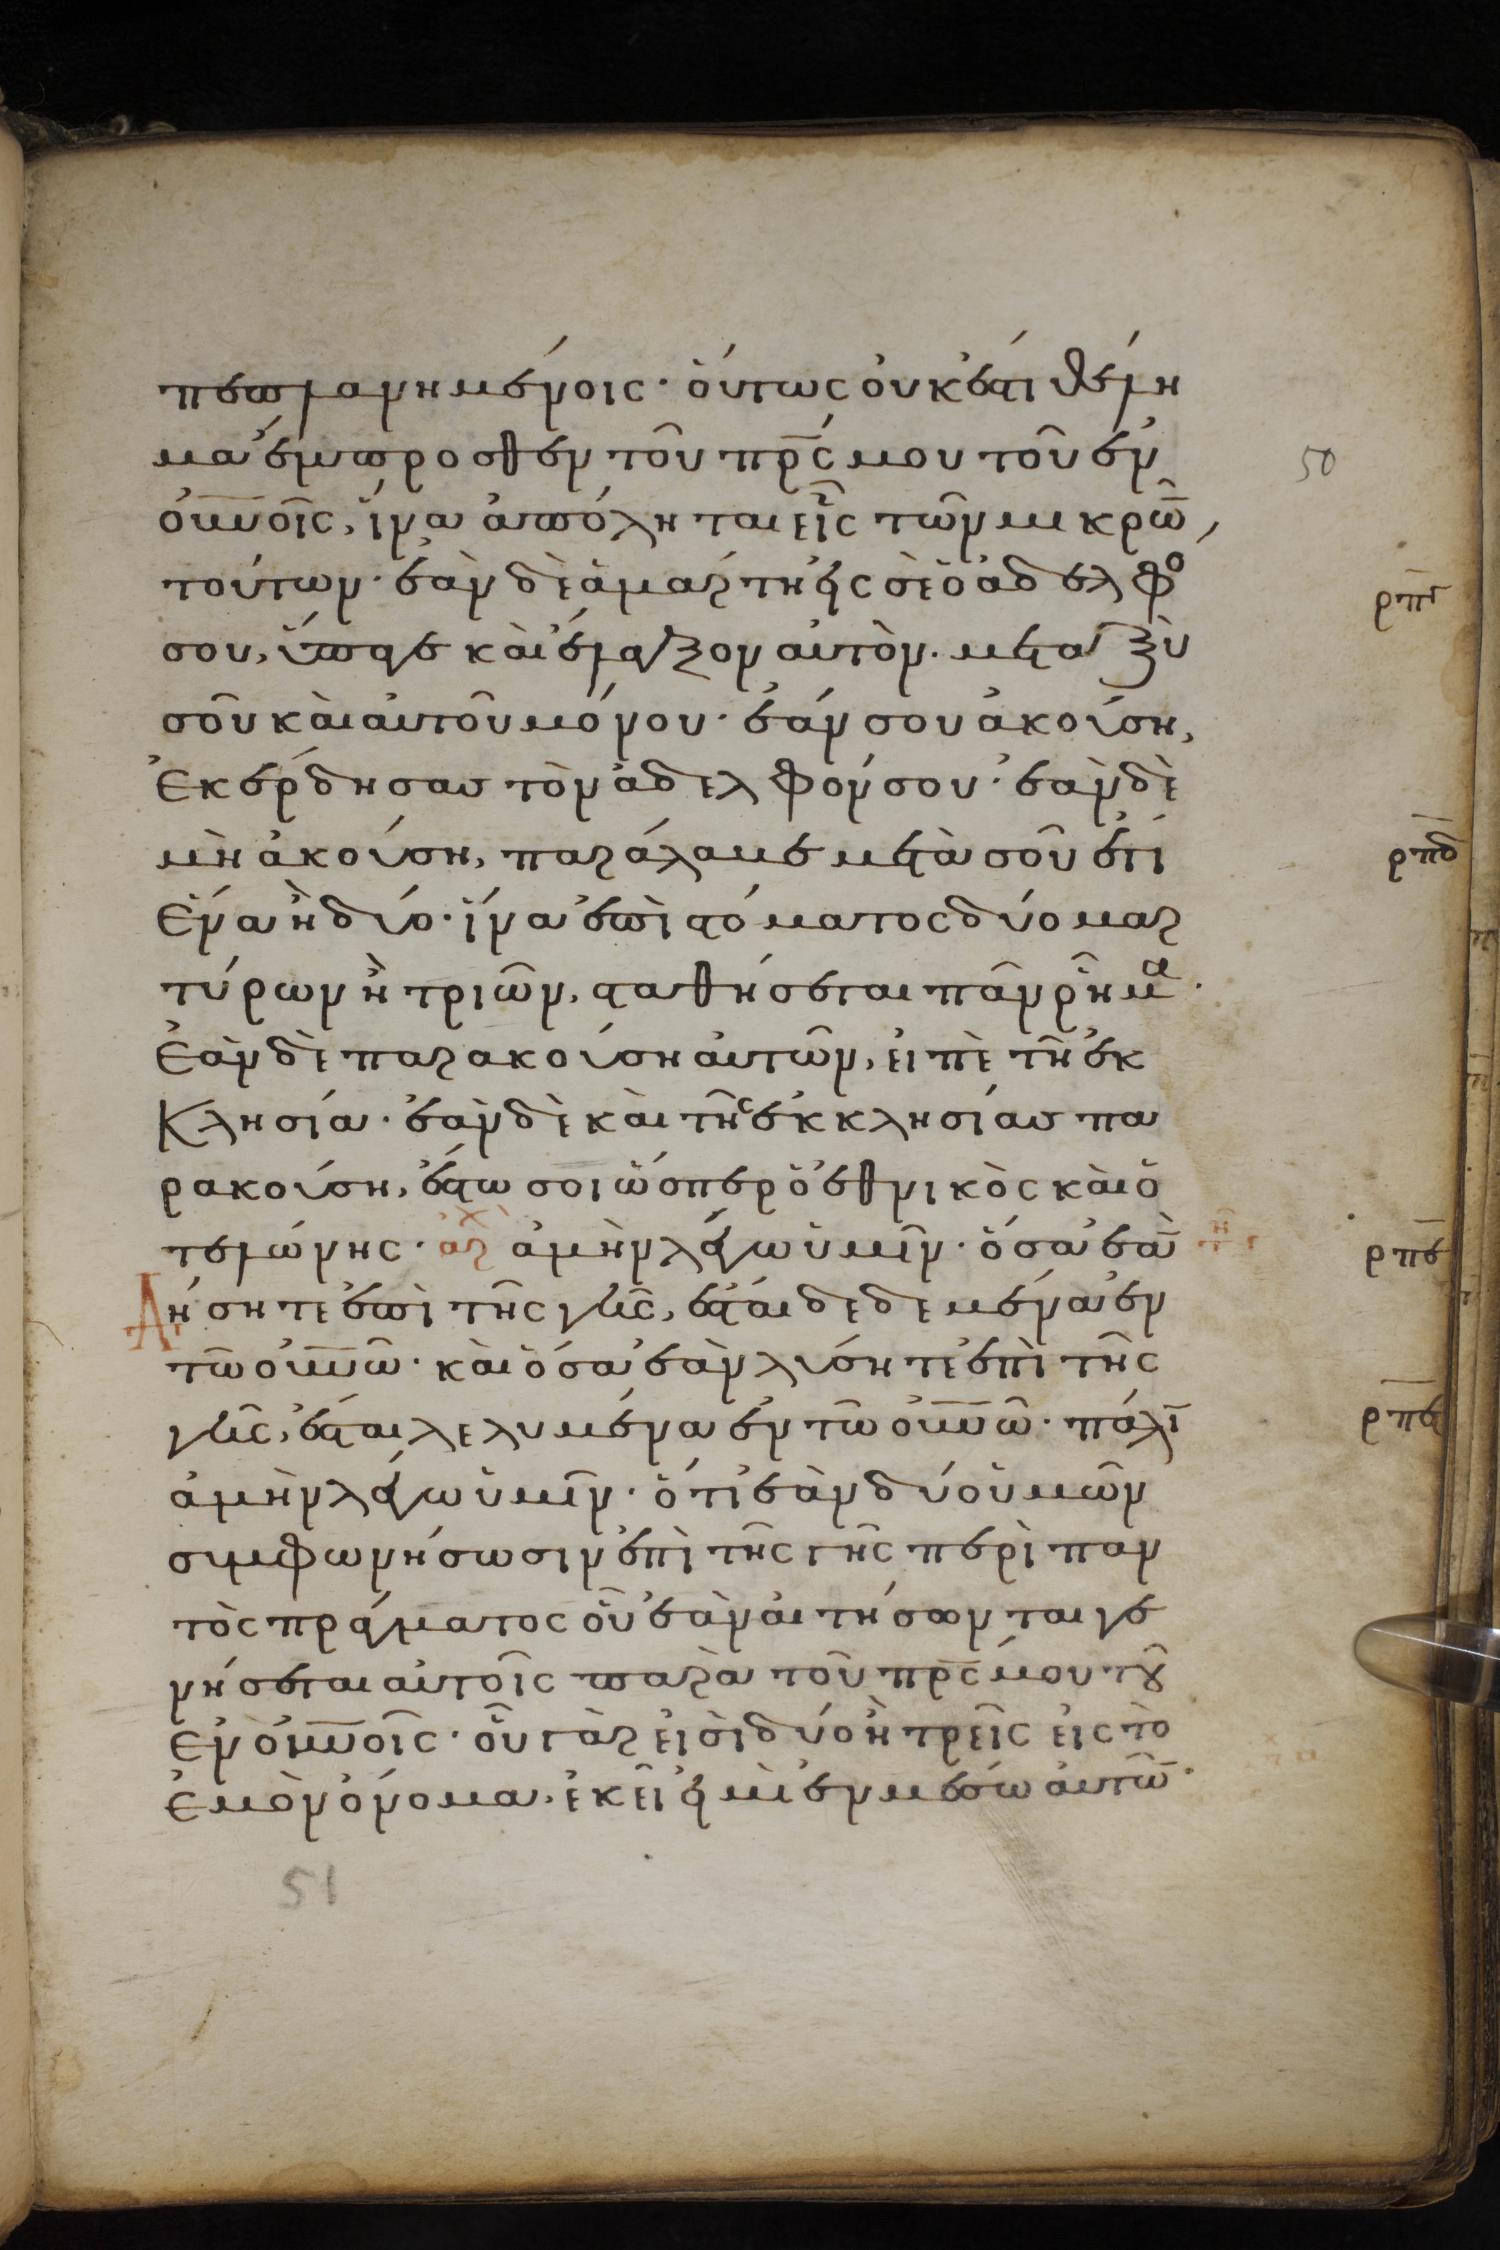 πεπλανημένοις· ὅυτως ὀυκ ἔστι θέλη
μα ἔμπροσθεν τοῦ πρ̅ς μου τοῦ ἐν
ὀυ̅νοῖς, ἵνα ἀπόληται εἷς τῶν μικρῶ̅,
τούτων· ἐὰν δὲ ἁμαρτήσῃς σὲ ὁ ἀδελφο
σου, ὕπαγε καὶ ἔλεγξον αὐτὸν· μεταξὺ
σοῦ καὶ αὐτοῦ μόνου· ἐάν σου ἀκούση,
ἐκέρδησας τὸν ἀδελφόν σου· ἐὰν δὲ
μὴ ἀκούση, παράλαμε μετὰ σοῦ ἔτι
ἕνα ἢ δύο· ἵνα ἐπὶ στόματος δύο μαρ
τύρων ἢ τριῶν, σταθήσεται πᾶν ῥῆμα·
ἐὰν δὲ παρακούση ἀυτῶν, ἐιπὲ τῆ ἐκ
κλησία· ἐὰν δὲ καὶ τῆς ἐκκλησίας πα
ρακούση, ἔστω σοι ὥσπερ ὁ ἐθνικὸς καὶ ὁ
τελώνης· ἀρχ ἀμὴν λέγω ὑμῖν· ὅσα ἐὰ̅
Δήσητε ἐπὶ τῆς γῆς, ἔσται δεδεμένα ἐν
τῶ ὀυ̅νῶ· καὶ ὅσα ἐὰν λύσητε ἐπὶ τῆς
γῆς, ἔσται λελυμένα ἐν τῶ ὀυ̅νῶ· πάλι̅
ἀμὴν λέγω ὑμῖν· ὅτι ἐὰν δύο ὑμῶν
συμφωνήσωσιν ἐπὶ τῆς γῆς περὶ παν
τὸς πράγματος οὗ ἐὰν ἀιτήσωνται γε
νήσεται αὐτοῖς παρὰ τοῦ πρ̅ς μου τοῦ
ἐν ὀυ̅νοῖς· οὗ γὰρ εἰσὶ δύο ἢ τρεῖς εἰς τὸ
ἐμὸν ὄνομα, ἐκεῖ εἰμὶ ἐν μέσω ἀυτῶ̅·
50
ρπγ
ρπδ
ρπε
ρπϛ
51